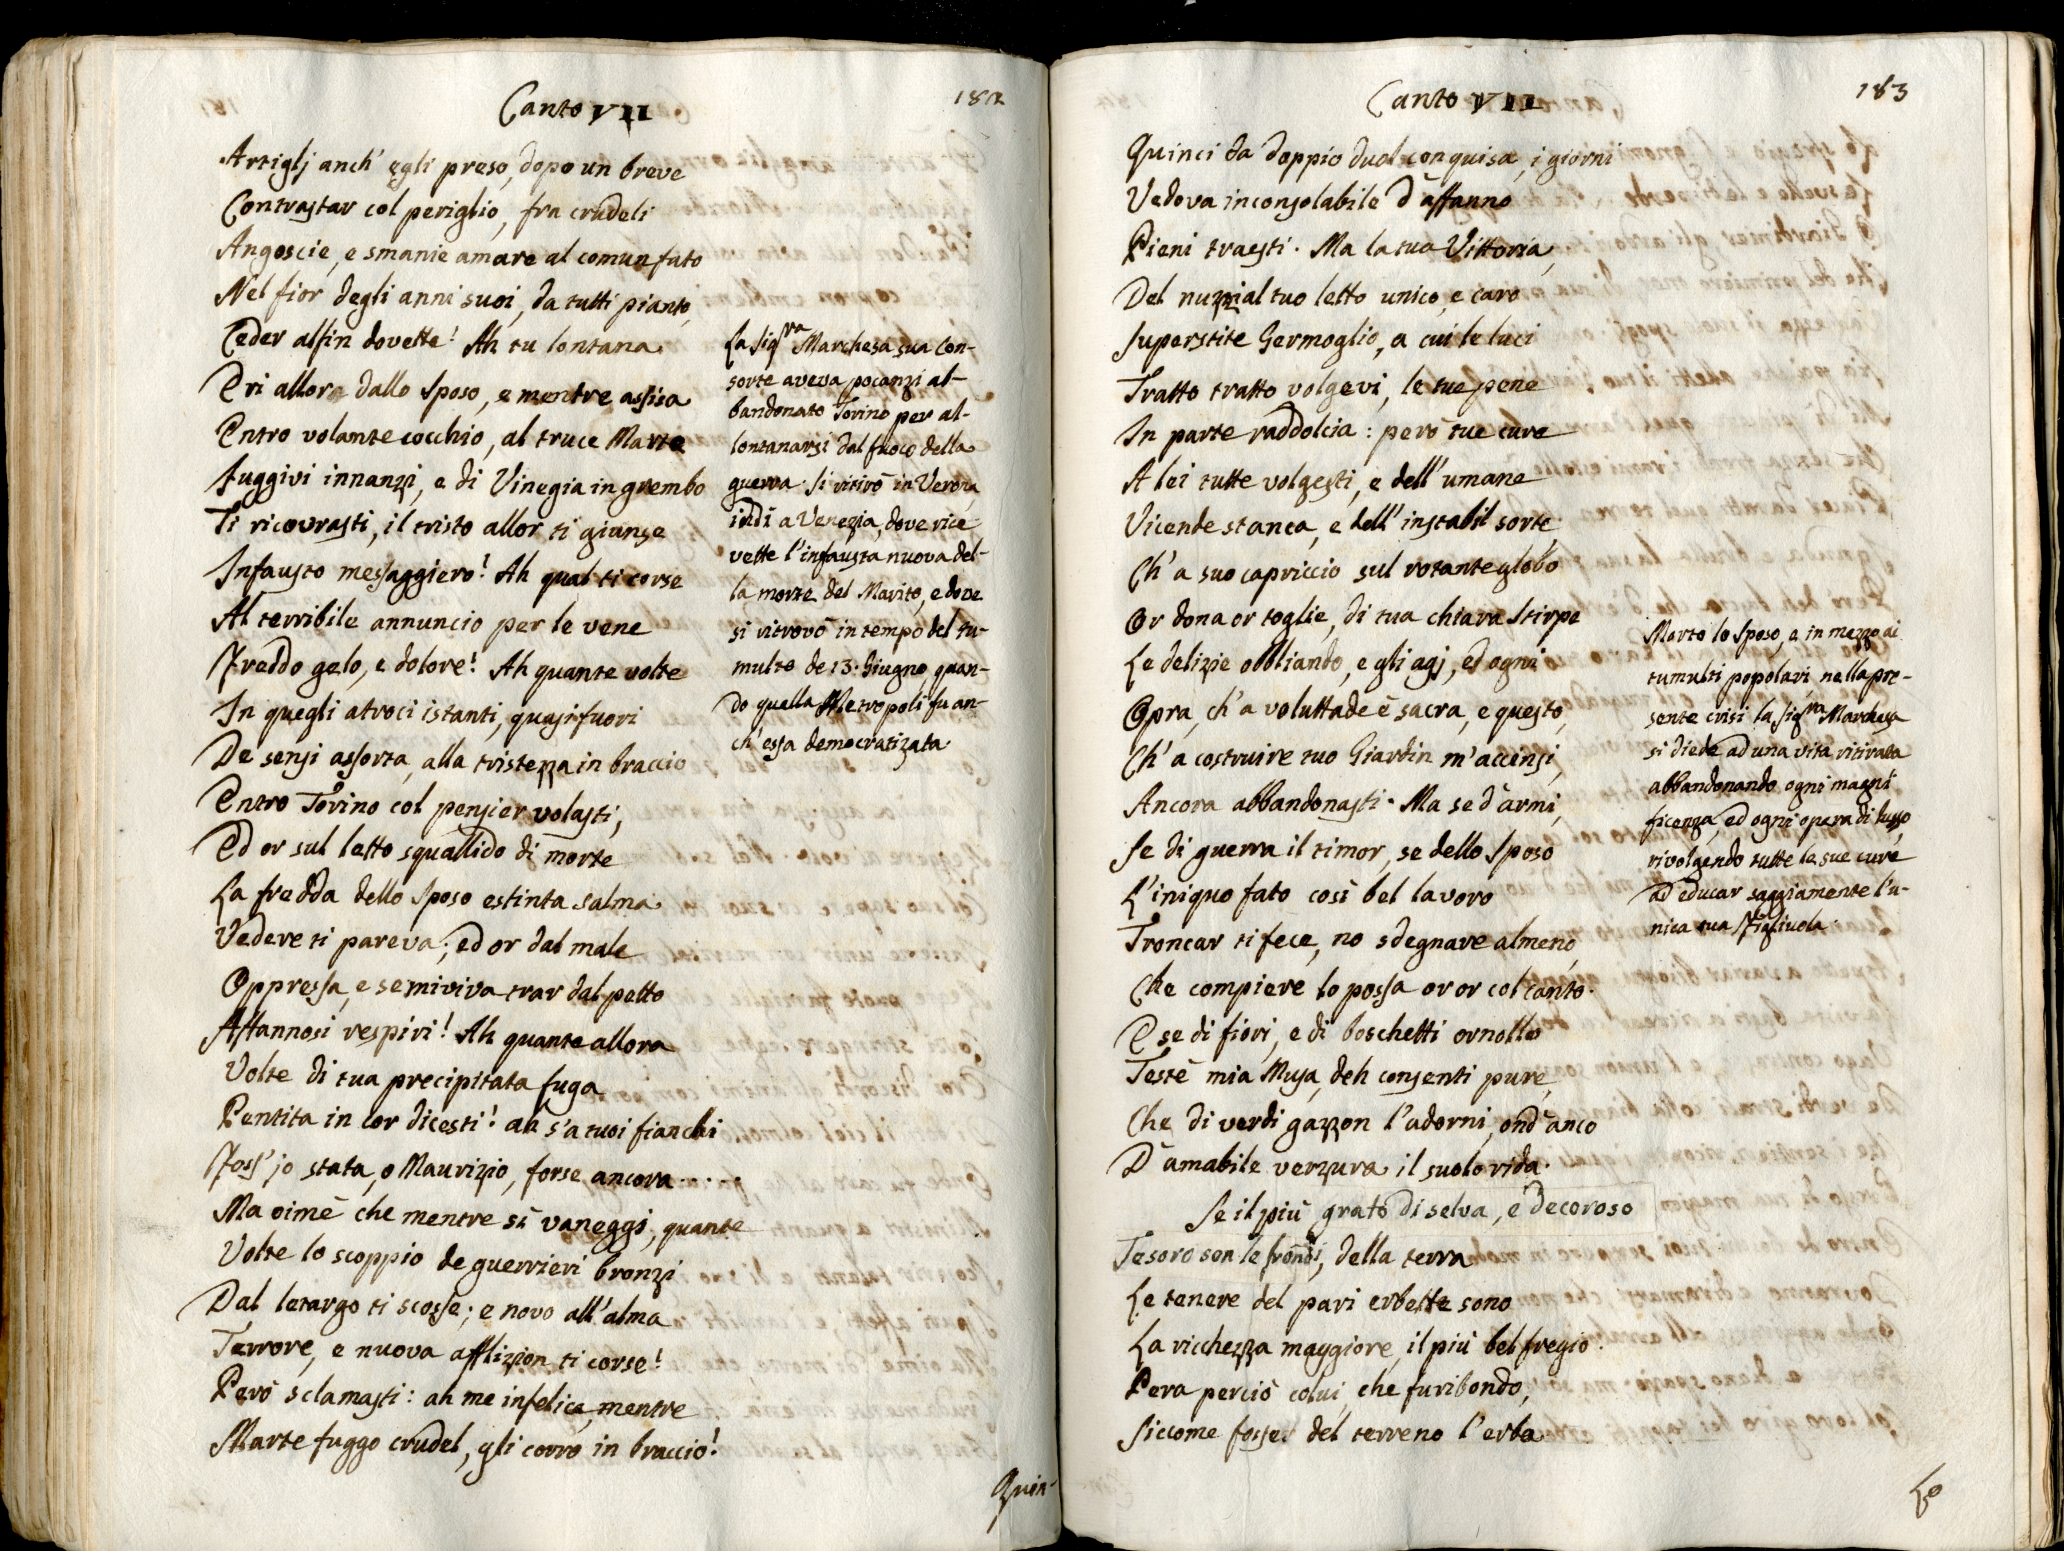 Canto VII
182
Artiglj anch' egli preso, dopo un breve
Contrastar col periglio, fra crudeli
Angoscie, e smanie amare al comun fato
Nel fior degli anni suoi, da tutti pianto,
Ceder alfin dovette! Ah tu lontana
Eri allora dallo Sposo, e mentre assisa
Entro volante cocchio, al truce Marte
Fuggivi innanzi, e di Vinegia in grembo
Ti ricovrasti, il tristo allor ti giunse
Infausto messaggiero! Ah qual ti corse
Al terribile annuncio per le vene
Freddo gelo, e dolore! Ah quante volte
In quegli atroci istanti, quasi fuori
De sensi assorta, alla tristezza in braccio
Entro Torino col pensier volasti,
Ed or sul letto squallido di morte
La fredda dello Sposo estinta salma
Vedere ti pareva; ed or dal male
Oppressa, e semiviva trar dal petto
Affannosi respiri! Ah quante allora
Volte di tua precipitata fuga
Pentita in cor dicesti! ah s'a tuoi fianchi
Foss' jo stata, o Maurizio, forse ancora.....
Ma oimè che mentre sì vaneggi, quante
Volte lo scoppio de guerrieri bronzi
Dal letargo ti scosse; e novo all'alma
Terrore, e nuova afflizion ti corse!
Però sclamasti: ah me infelice, mentre
Marte fuggo crudel, gli corro in braccio!
La Sig.ra Marchesa sua Con-
sorte aveva pocanzi ab-
bandonato Torino per al-
lontanarsi dal fuoco della
guerra. Si ritirò in Verona,
indi a Venezia, dove rice
vette l'infausta nuova del-
la morte del Marito, e dove
si ritrovò in tempo del tu-
multo de 13. Giugno, quan-
do quella Metropoli fu an-
ch'essa democratizata
Quin-
Canto VII
183
Quinci da doppio duol conquisa, i giorni
Vedova inconsolabile d'affanno
Pieni traesti. Ma la tua Vittoria,
Del nuzzial tuo letto unico, e caro
Superstite Germoglio, a cui le luci
Tratto tratto volgevi, le tue pene
In parte raddolcia: però tue cure
A lei tutte volgesti, e dell'umane
Vicende stanca, e dell'instabil sorte,
Ch'a suo capriccio sul rotante globo
Or dona or toglie, di tua chiara Stirpe
Le delizie obbliando, e gli agj, ed ogni
Opra, ch'a voluttade è sacra, e questo,
Ch'a costruire tuo Giardin m'accinsi,
Ancora abbandonasti. Ma se d'armi,
Se di guerra il timor, se dello Sposo
L'iniquo fato così bel lavoro
Troncar ti fece, no sdegnare almeno,
Che compiere lo possa or or col canto.
E se di fiori, e di boschetti ornollo
Testè mia Musa, deh consenti pure,
Che di verdi gazzon l'adorni, ond'anco
D'amabile verzura il suolo rida.
Se il più grato di selva, e decoroso
Tesoro son le frondi, della terra
Le tenere del pari erbette sono
La ricchezza maggiore, il più bel fregio.
Pera perciò colui, che furibondo,
Siccome fosse del terreno l'erba
Morto lo Sposo, e in mezzo ai
tumulti popolari, nella pre-
sente crisi la Sig.ra Marchesa
si diede ad una vita ritirata
abbandonando ogni magni
ficenza, ed ogni opera di lusso,
rivolgendo tutte le sue cure
ad educar saggiamente l'u-
nica sua Figliuola.
Lo